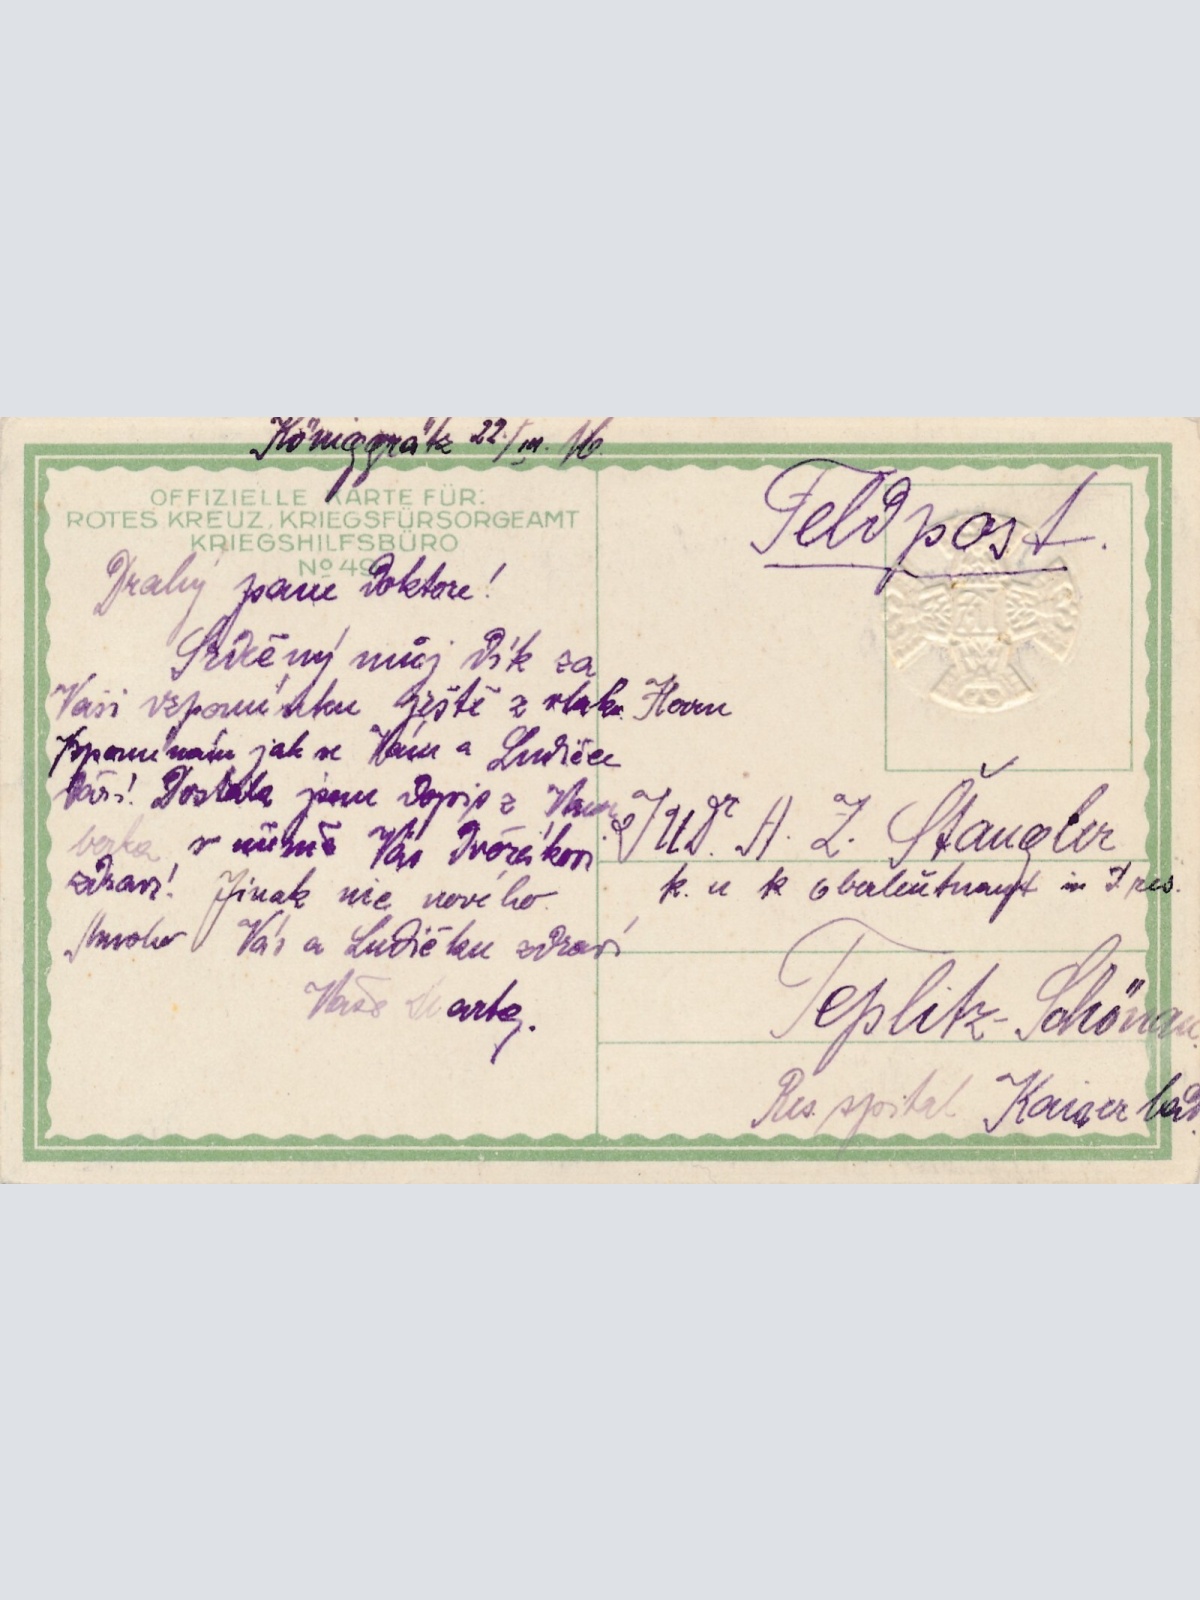 Königgrätz 22./III. 16.
OFFIZIELLE KARTE FÜR:
ROTES KREUZ, KRIEGSFÜRSORGEAMT
KRIEGSHILFSBÜRO
No 49
Drahý pane Doktore!
Srdečný můj dík za
Vaši vzpomínku ještě z vlaku.
Vzpomínám jak se Vám a Ludičce
daří! Dostala jsem dopis z
berka v němž Vás Dvořákovi
zdraví! Jinak nic nového.
Mnoho Vás a Ludičku zdraví
Vaše Marta.
Feldpost.
Herrn
JUDr. A. Z. Štangler
k. u k Oberleutnant in d. res.
Teplitz-Schönau.
Res. spital Kaiserbad.